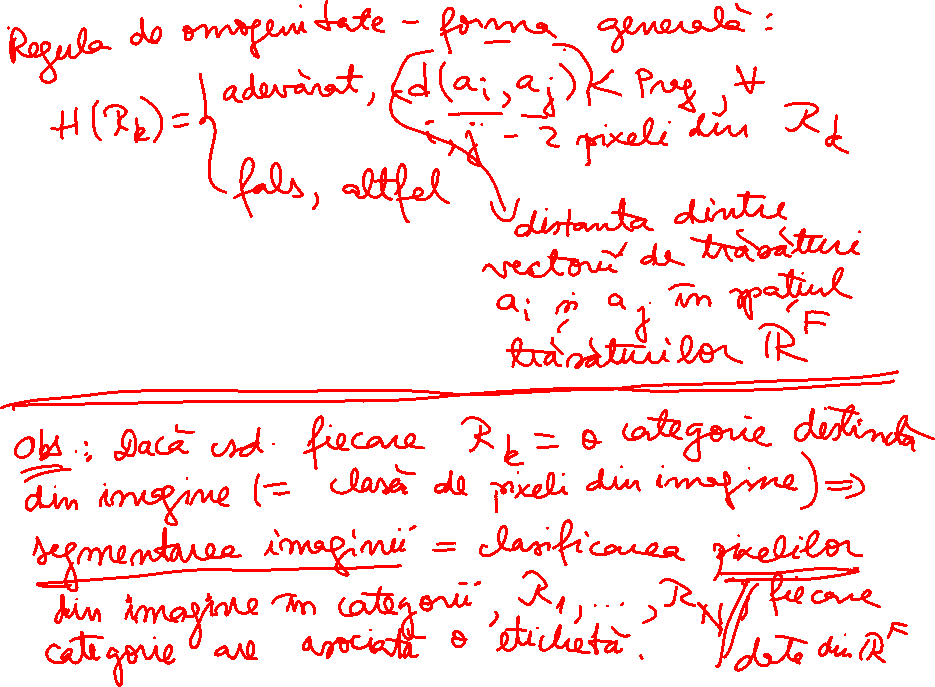 Regula de omogenitate - forma generală:
H(R_k) = { adevărat, d(a_i, a_j) < Prag, ∀
i, j - 2 pixeli din R_k
fals, altfel
distanta dintre
vectorii de trăsături
a_i și a_j în spațiul
trăsăturilor ℝ^F
Obs.: Dacă csd. fiecare R_k = o categorie distinctă
din imagine (= clasă de pixeli din imagine) ⇒
segmentarea imaginii = clasificarea pixelilor
din imagine în categorii, R_1, ..., R_N, fiecare
categorie are asociată o etichetă.
date din ℝ^F